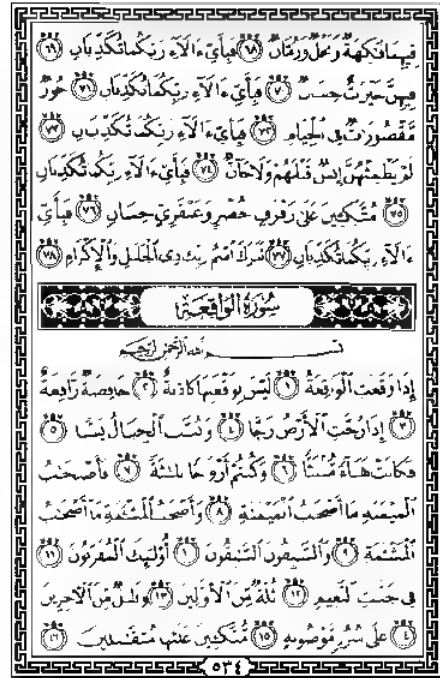 فِيهِمَا فَٰكِهَةٌ وَنَخْلٌ وَرُمَّانٌ ٦٨ فَبِأَيِّ ءَالَآءِ رَبِّكُمَا تُكَذِّبَانِ ٦٩
فِيهِنَّ خَيْرَٰتٌ حِسَانٌ ٧٠ فَبِأَيِّ ءَالَآءِ رَبِّكُمَا تُكَذِّبَانِ ٧١ حُورٌ
مَّقْصُورَٰتٌ فِي الْخِيَامِ ٧٢ فَبِأَيِّ ءَالَآءِ رَبِّكُمَا تُكَذِّبَانِ ٧٣
لَمْ يَطْمِثْهُنَّ إِنسٌ قَبْلَهُمْ وَلَا جَآنٌّ ٧٤ فَبِأَيِّ ءَالَآءِ رَبِّكُمَا تُكَذِّبَانِ
٧٥ مُتَّكِـِٔينَ عَلَىٰ رَفْرَفٍ خُضْرٍ وَعَبْقَرِيٍّ حِسَانٍ ٧٦ فَبِأَيِّ
ءَالَآءِ رَبِّكُمَا تُكَذِّبَانِ ٧٧ تَبَٰرَكَ اسْمُ رَبِّكَ ذِي الْجَلَٰلِ وَالْإِكْرَامِ ٧٨
سُورَةُ الْوَاقِعَةِ
بِسْمِ اللَّهِ الرَّحْمَٰنِ الرَّحِيمِ
إِذَا وَقَعَتِ الْوَاقِعَةُ ١ لَيْسَ لِوَقْعَتِهَا كَاذِبَةٌ ٢ خَافِضَةٌ رَّافِعَةٌ
٣ إِذَا رُجَّتِ الْأَرْضُ رَجًّا ٤ وَبُسَّتِ الْجِبَالُ بَسًّا ٥
فَكَانَتْ هَبَآءً مُّنۢبَثًّا ٦ وَكُنتُمْ أَزْوَٰجًا ثَلَٰثَةً ٧ فَأَصْحَٰبُ
الْمَيْمَنَةِ مَآ أَصْحَٰبُ الْمَيْمَنَةِ ٨ وَأَصْحَٰبُ الْمَشْـَٔمَةِ مَآ أَصْحَٰبُ
الْمَشْـَٔمَةِ ٩ وَالسَّٰبِقُونَ السَّٰبِقُونَ ١٠ أُو۟لَٰٓئِكَ الْمُقَرَّبُونَ ١١
فِي جَنَّٰتِ النَّعِيمِ ١٢ ثُلَّةٌ مِّنَ الْأَوَّلِينَ ١٣ وَقَلِيلٌ مِّنَ الْآخِرِينَ
١٤ عَلَىٰ سُرُرٍ مَّوْضُونَةٍ ١٥ مُّتَّكِـِٔينَ عَلَيْهَا مُتَقَٰبِلِينَ ١٦
٥٣٤